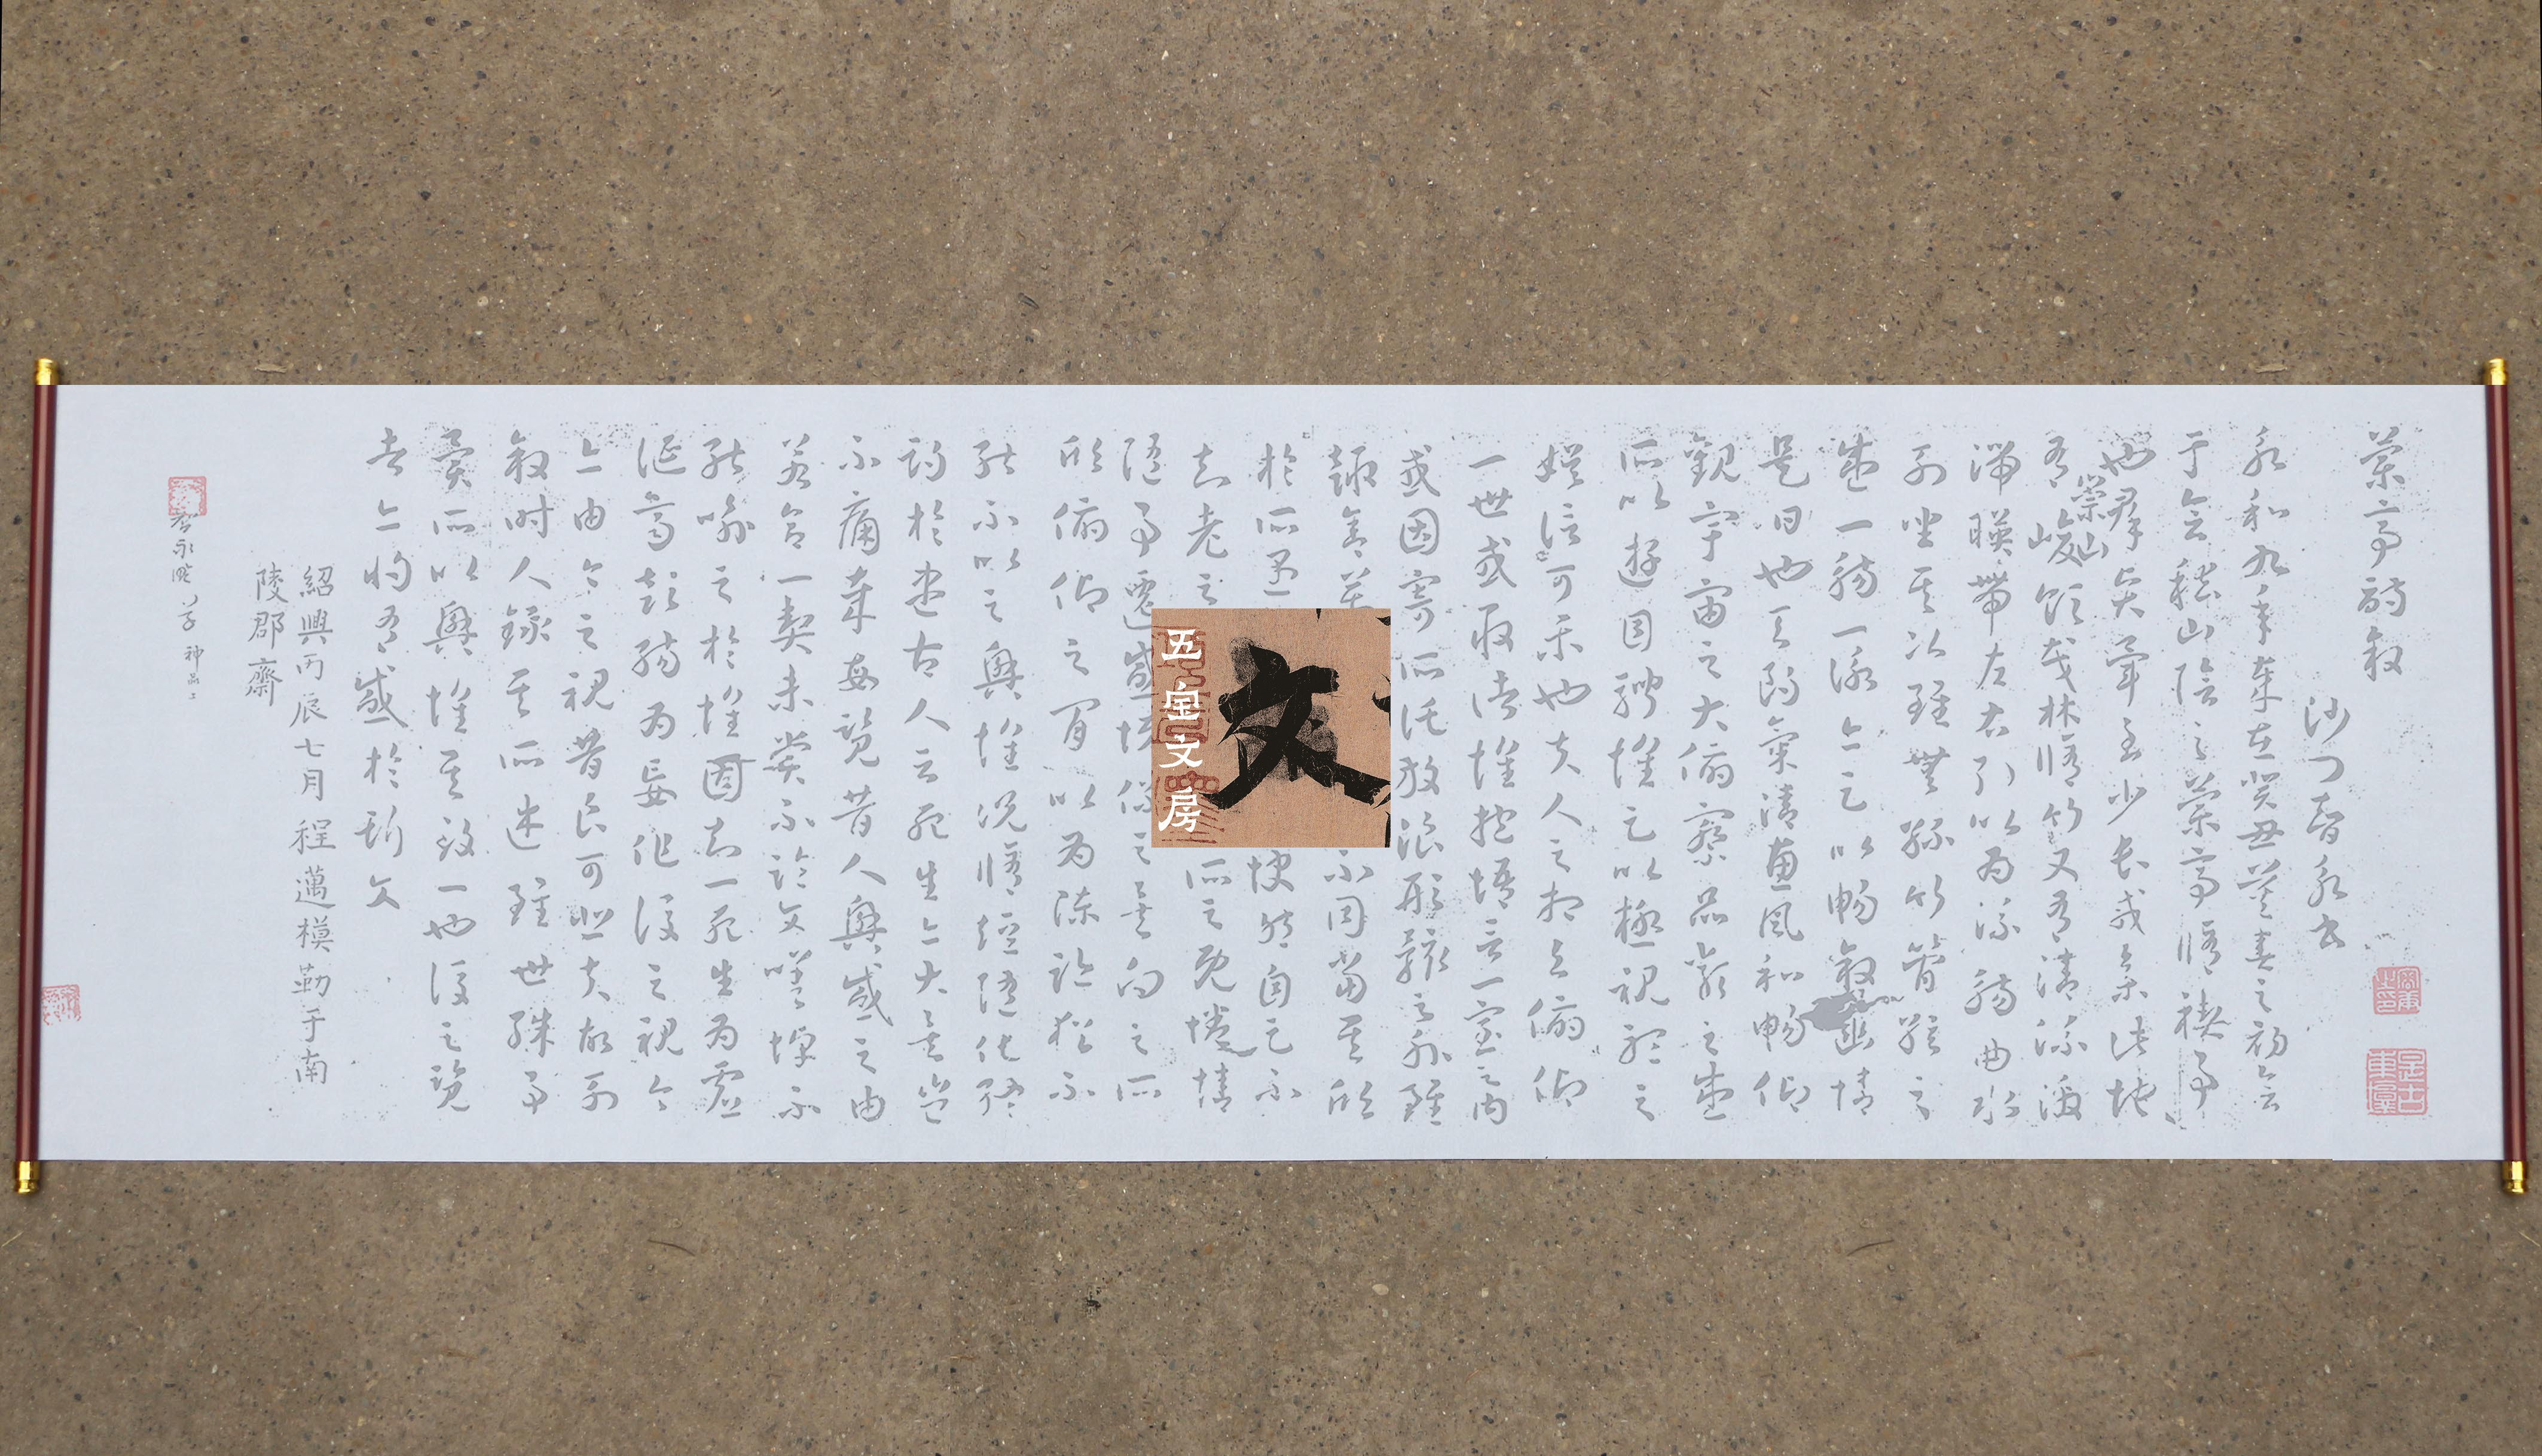 蘭亭詩敘
沙門智永書
永和九年歲在癸丑暮春之初會
于會稽山陰之蘭亭脩禊事
也群賢畢至少長咸集此地
崇山
有峻領茂林脩竹又有清流激
湍暎帶左右引以為流觴曲水
列坐其次雖無絲竹管絃之
盛一觴一詠亦足以暢敘幽情
是日也天朗氣清惠風和暢仰
觀宇宙之大俯察品類之盛
所以遊目騁懷足以極視聽之
娛信可樂也夫人之相與俯仰
一世或取諸懷抱悟言一室之內
或因寄所託放浪形骸之外雖
趣舍萬不同當其欣
於所遇快然自足不
知老之所之既惓情
隨事遷感慨係之矣向之所
欣俯仰之間以為陳跡猶不
能不以之興懷況脩短隨化終
期於盡古人云死生亦大矣豈
不痛哉每覽昔人興感之由
若合一契未嘗不臨文嗟悼不
能喻之於懷固知一死生為虛
誕齊彭殤為妄作後之視今
亦由今之視昔良可悲夫故列
敘時人錄其所述雖世殊事
異所以興懷其致一也後之覽
者亦將有感於斯文
紹興丙辰七月程邁模勒于南
陵郡齋
神品上
五宝文房
文